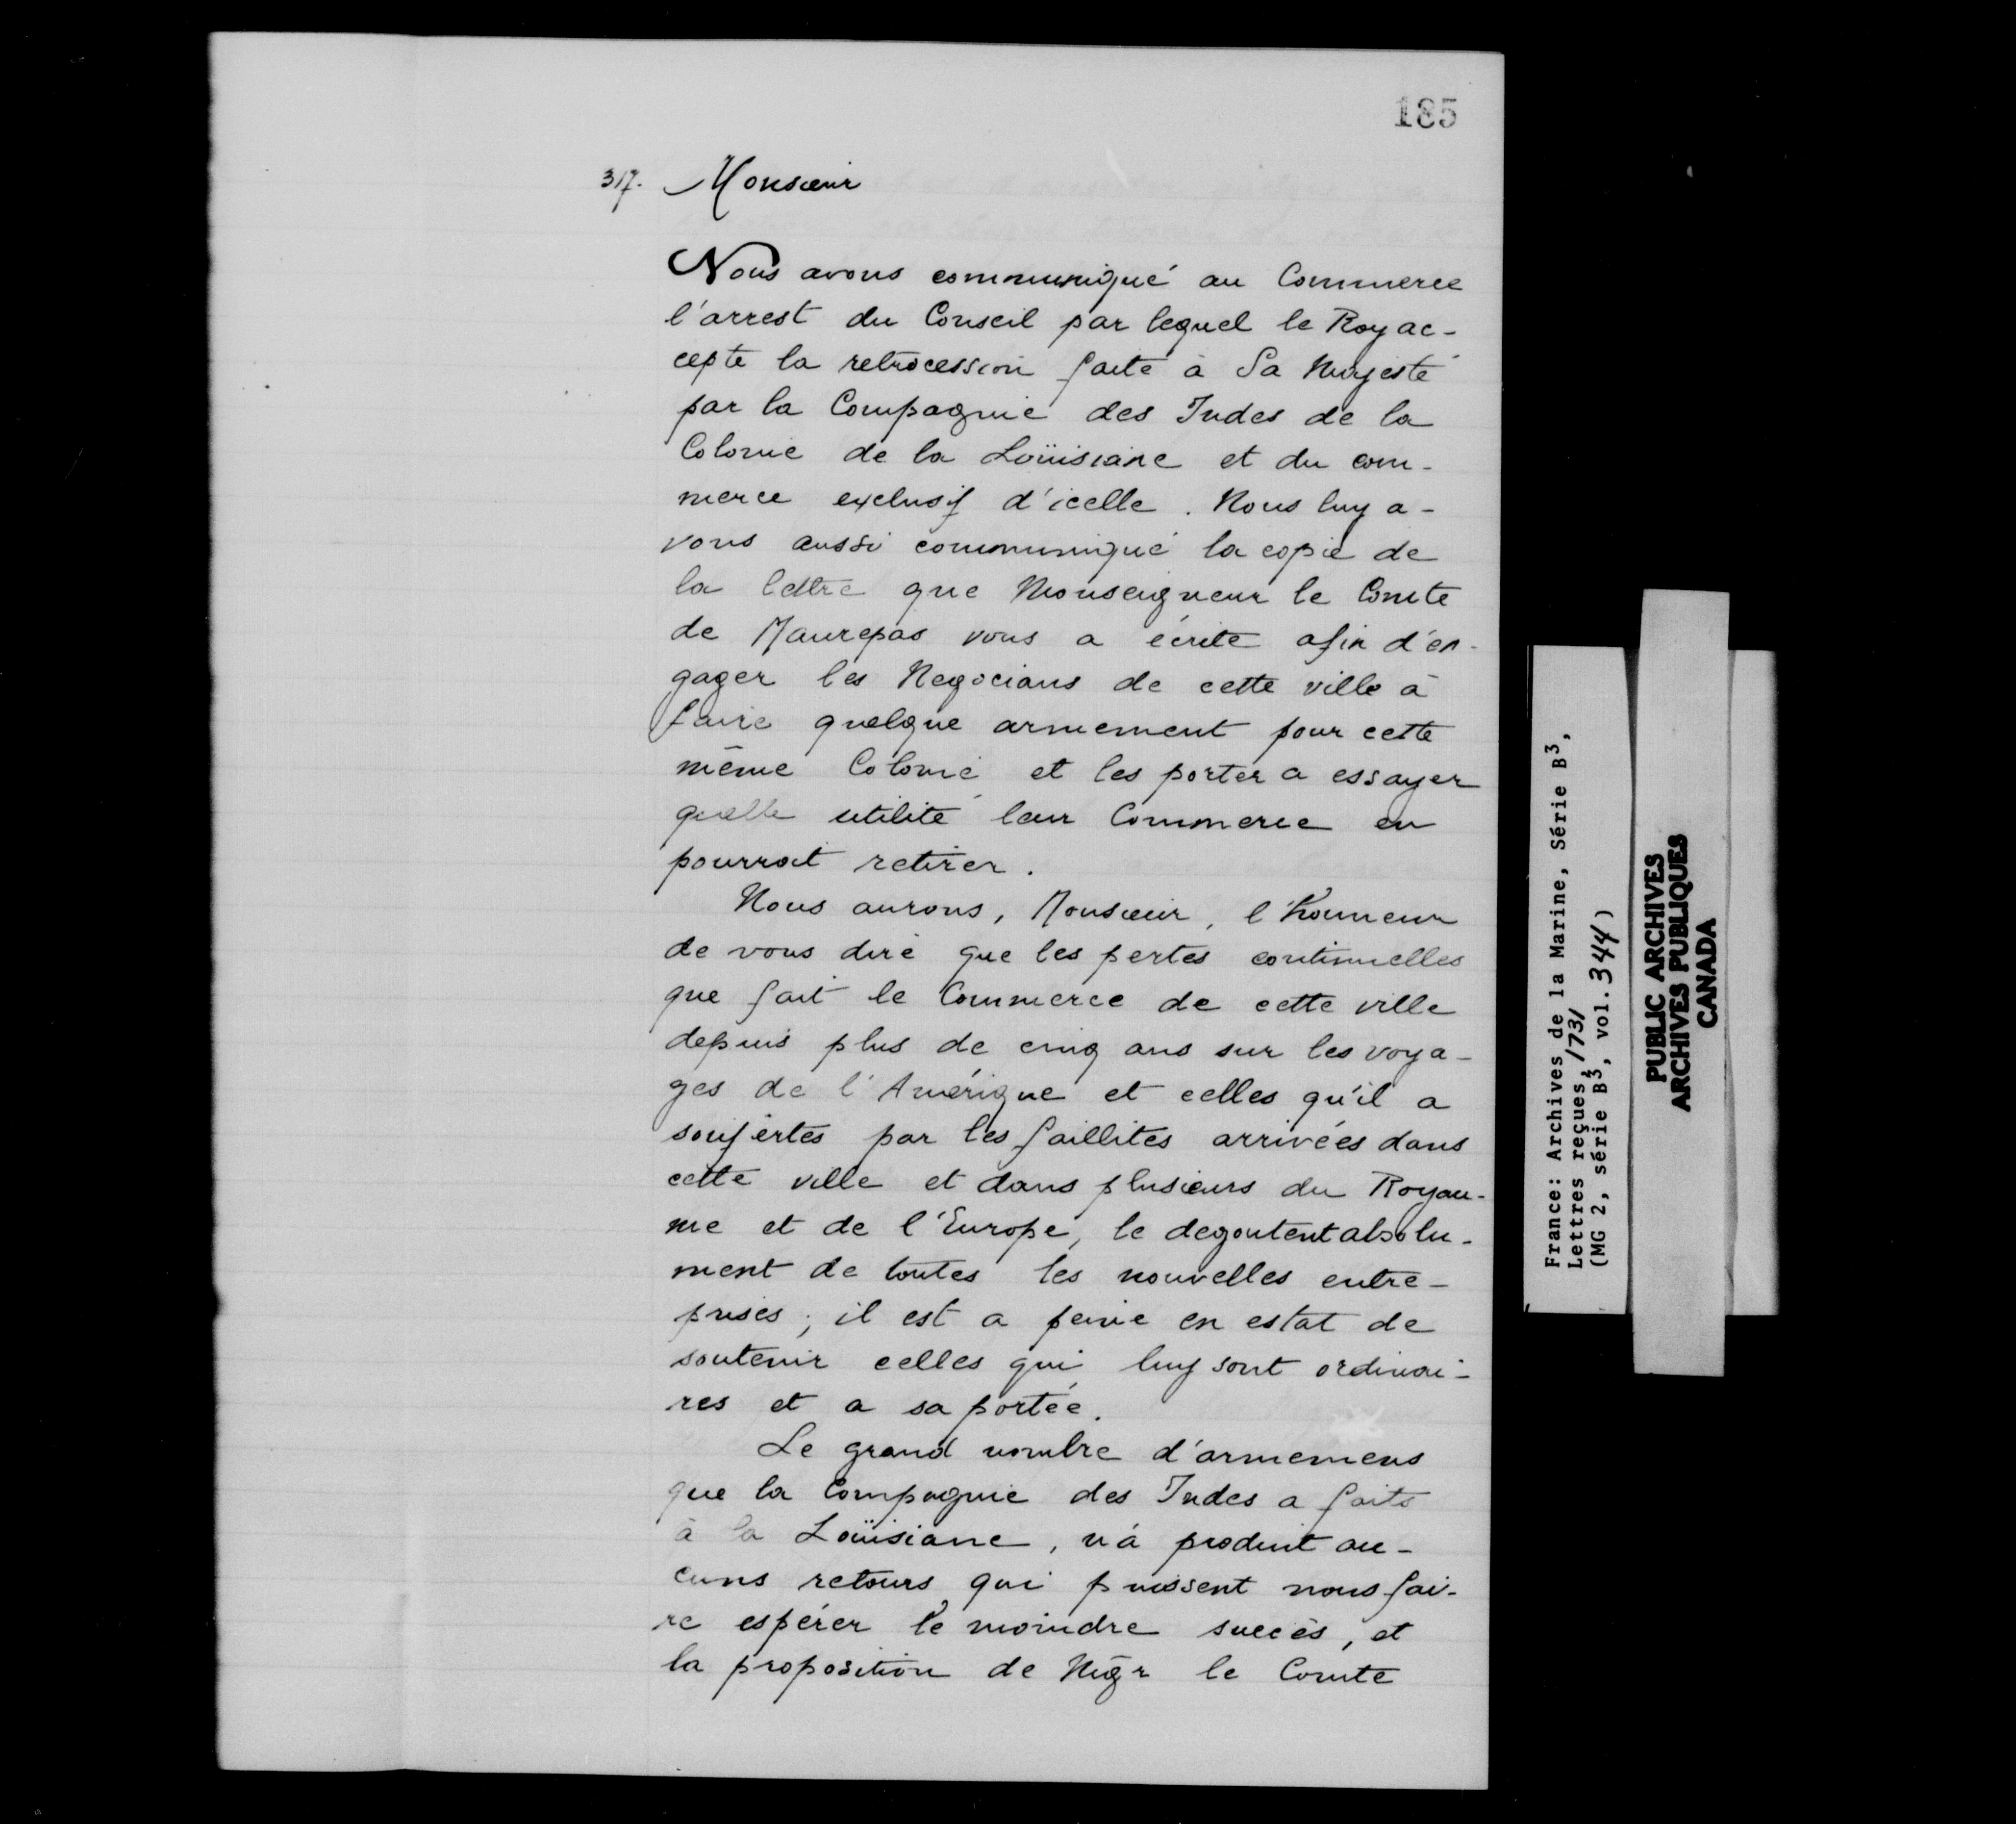 185
317. Monsieur
Nous avons communiqué au Commerce
l'arrest du Conseil par lequel le Roy ac-
cepte la retrocession faite à Sa Majesté
par la Compagnie des Indes de la
Colonie de la Loüisiane et du com-
merce exclusif d'icelle. Nous luy a-
vons aussi communiqué la copie de
la lettre que Monseigneur le Comte
de Maurepas vous a écrite afin d'en-
gager les Negocians de cette ville à
faire quelque armement pour cette
même Colonie et les porter a essayer
quelle utilité leur Commerce en
pourroit retirer.
Nous aurons, Monsieur, l'honneur
de vous dire que les pertes continuelles
que fait le Commerce de cette ville
depuis plus de cinq ans sur les voya-
ges de l'Amérique et celles qu'il a
soufertes par les faillites arrivées dans
cette ville et dans plusieurs du Royau-
me et de l'Europe, le degoutent absolu-
ment de toutes les nouvelles entre-
prises; il est a peine en estat de
soutenir celles qui luy sont ordinai-
res et a sa portée.
Le grand nombre d'armemens
que la Compagnie des Indes a faits
à la Loüisiane, n'a produit au-
cuns retours qui puissent nous fai-
re espérer le moindre succès, et
la proposition de Mgr le Comte
France: Archives de la Marine, Série B3,
Lettres reçues, 1731
(MG 2, série B3, vol. 344)
PUBLIC ARCHIVES
ARCHIVES PUBLIQUES
CANADA